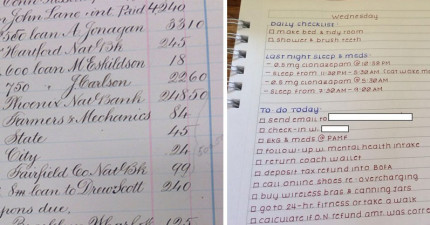 John Lane int. Paid 4240
500 loan A. Jonagan 3310
Hartford Nat'l Bk 245
600 loan M Eskildson 18
750 " J Carlson 2260
Phoenix Nat'l Bank 24850
Farmers & Mechanics 84
State 45
City 24
Fairfield Co Nat'l Bk 99
8m loan to Drew Scott 240
pons due,
125
Wednesday
Daily checklist:
make bed & tidy room
shower & brush teeth
Last night sleep & meds:
- 0.5 mg clonazepam @ 10:38 PM
- Sleep from 11:30 PM - 5:30 AM
- 0.5 mg clonazepam @ 5:30 AM
- Sleep from 7:30 AM - 9:00 AM
To-do Today:
send email to
check-in w/
EKG & meds @ PAMF
follow-up w/ mental health intake
return coach wallet
deposit tax refund into BofA
call online shoes re: overcharging
buy wireless bras & canning jars
go to 24-hr. fitness or take a walk
calculate if D.N. refund amt. was corre